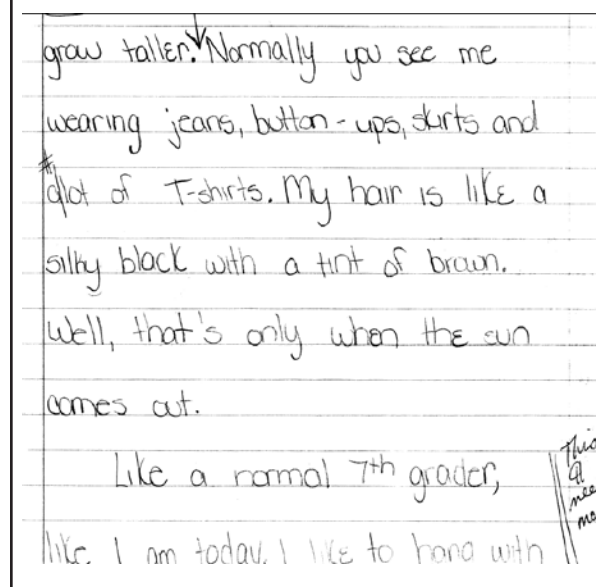 grow taller. Normally you see me
wearing jeans, button-ups, skirts and
alot of T-shirts. My hair is like a
silky black with a tint of brown.
Well, that's only when the sun
comes out.
Like a normal 7th grader,
like I am today. I like to hang with